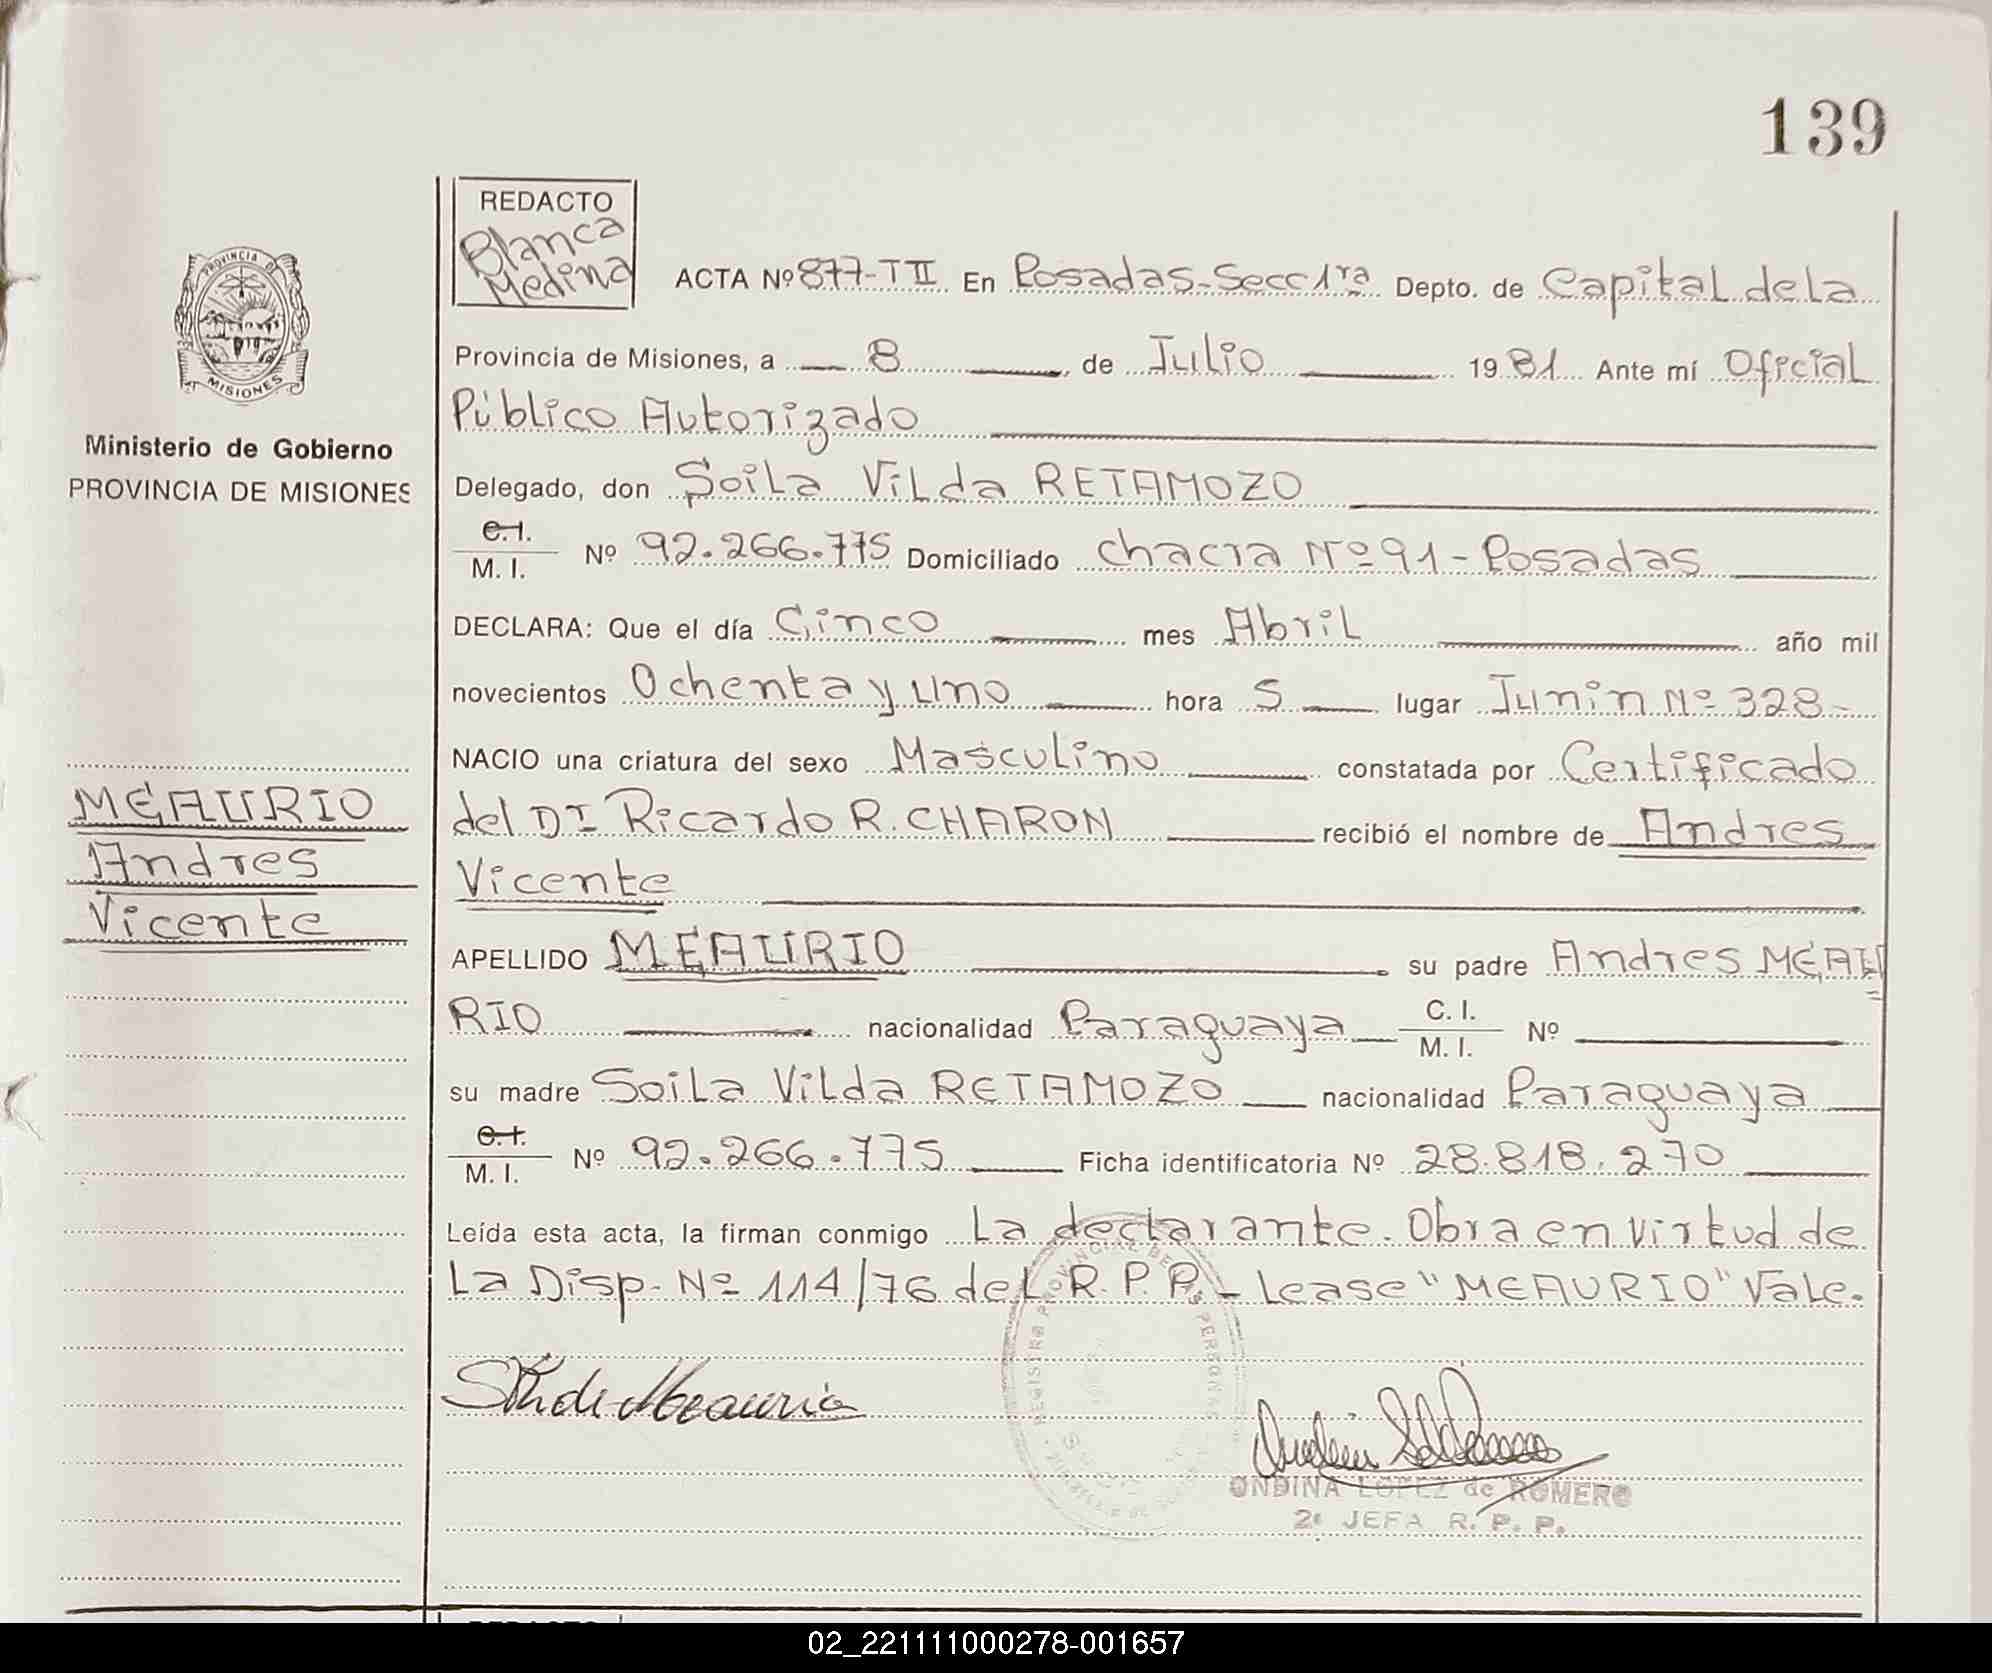 139
REDACTO
Blanca
Medina
PROVINCIA DE
MISIONES
Ministerio de Gobierno
PROVINCIA DE MISIONES
MEAURIO
Andres
Vicente
ACTA Nº 877-TII En Posadas-Secc 1ra Depto. de Capital de la
Provincia de Misiones, a 8 de Julio 1981 Ante mí Oficial
Público Autorizado
Delegado, don Soila Vilda RETAMOZO
C.I.
M. I. Nº 92.266.775 Domiciliado chacra Nº 91 - Posadas
DECLARA: Que el día Cinco mes Abril año mil
novecientos Ochenta y uno hora 5 lugar Junin Nº 328-
NACIO una criatura del sexo Masculino constatada por Certificado
del Dr Ricardo R. CHARON recibió el nombre de Andres
Vicente
APELLIDO MEAURIO su padre Andres MEAU
RIO nacionalidad Paraguaya C. I.
M. I. Nº
su madre Soila Vilda RETAMOZO nacionalidad Paraguaya
C.I.
M. I. Nº 92.266.775 Ficha identificatoria Nº 28.818.270
Leída esta acta, la firman conmigo La declarante. Obra en virtud de
La Disp. Nº 114/76 del R.P.P. - Lease "MEAURIO" Vale.
de Meaurio
ONDINA LOPEZ de ROMERO
2ª JEFA R. P. P.
02_221111000278-001657